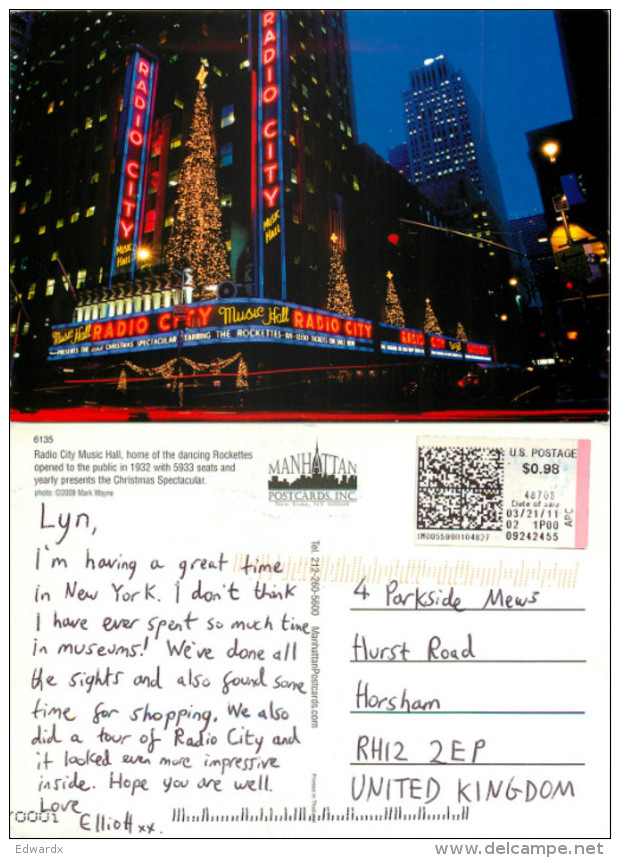 RADIO CITY
MUSIC HALL
RADIO CITY
MUSIC HALL
Music Hall RADIO CITY Music Hall RADIO CITY RADIO CITY
6135
Radio City Music Hall, home of the dancing Rockettes
opened to the public in 1932 with 5933 seats and
yearly presents the Christmas Spectacular.
photo: ©2009 Mark Wayne
MANHATTAN
POSTCARDS, INC.
NEW YORK, NY
U.S. POSTAGE
$0.98
Date of sale
03/21/11
02 1P00
09242455
APC
Lyn,
I'm having a great time
in New York. I don't think
I have ever spent so much time
in museums! We've done all
the sights and also found some
time for shopping. We also
did a tour of Radio City and
it looked even more impressive
inside. Hope you are well.
Love
Elliott xx.
Tel. 212-260-5600 ManhattanPostcards.com
4 Parkside Mews
Hurst Road
Horsham
RH12 2EP
UNITED KINGDOM
Edwardx
www.delcampe.net